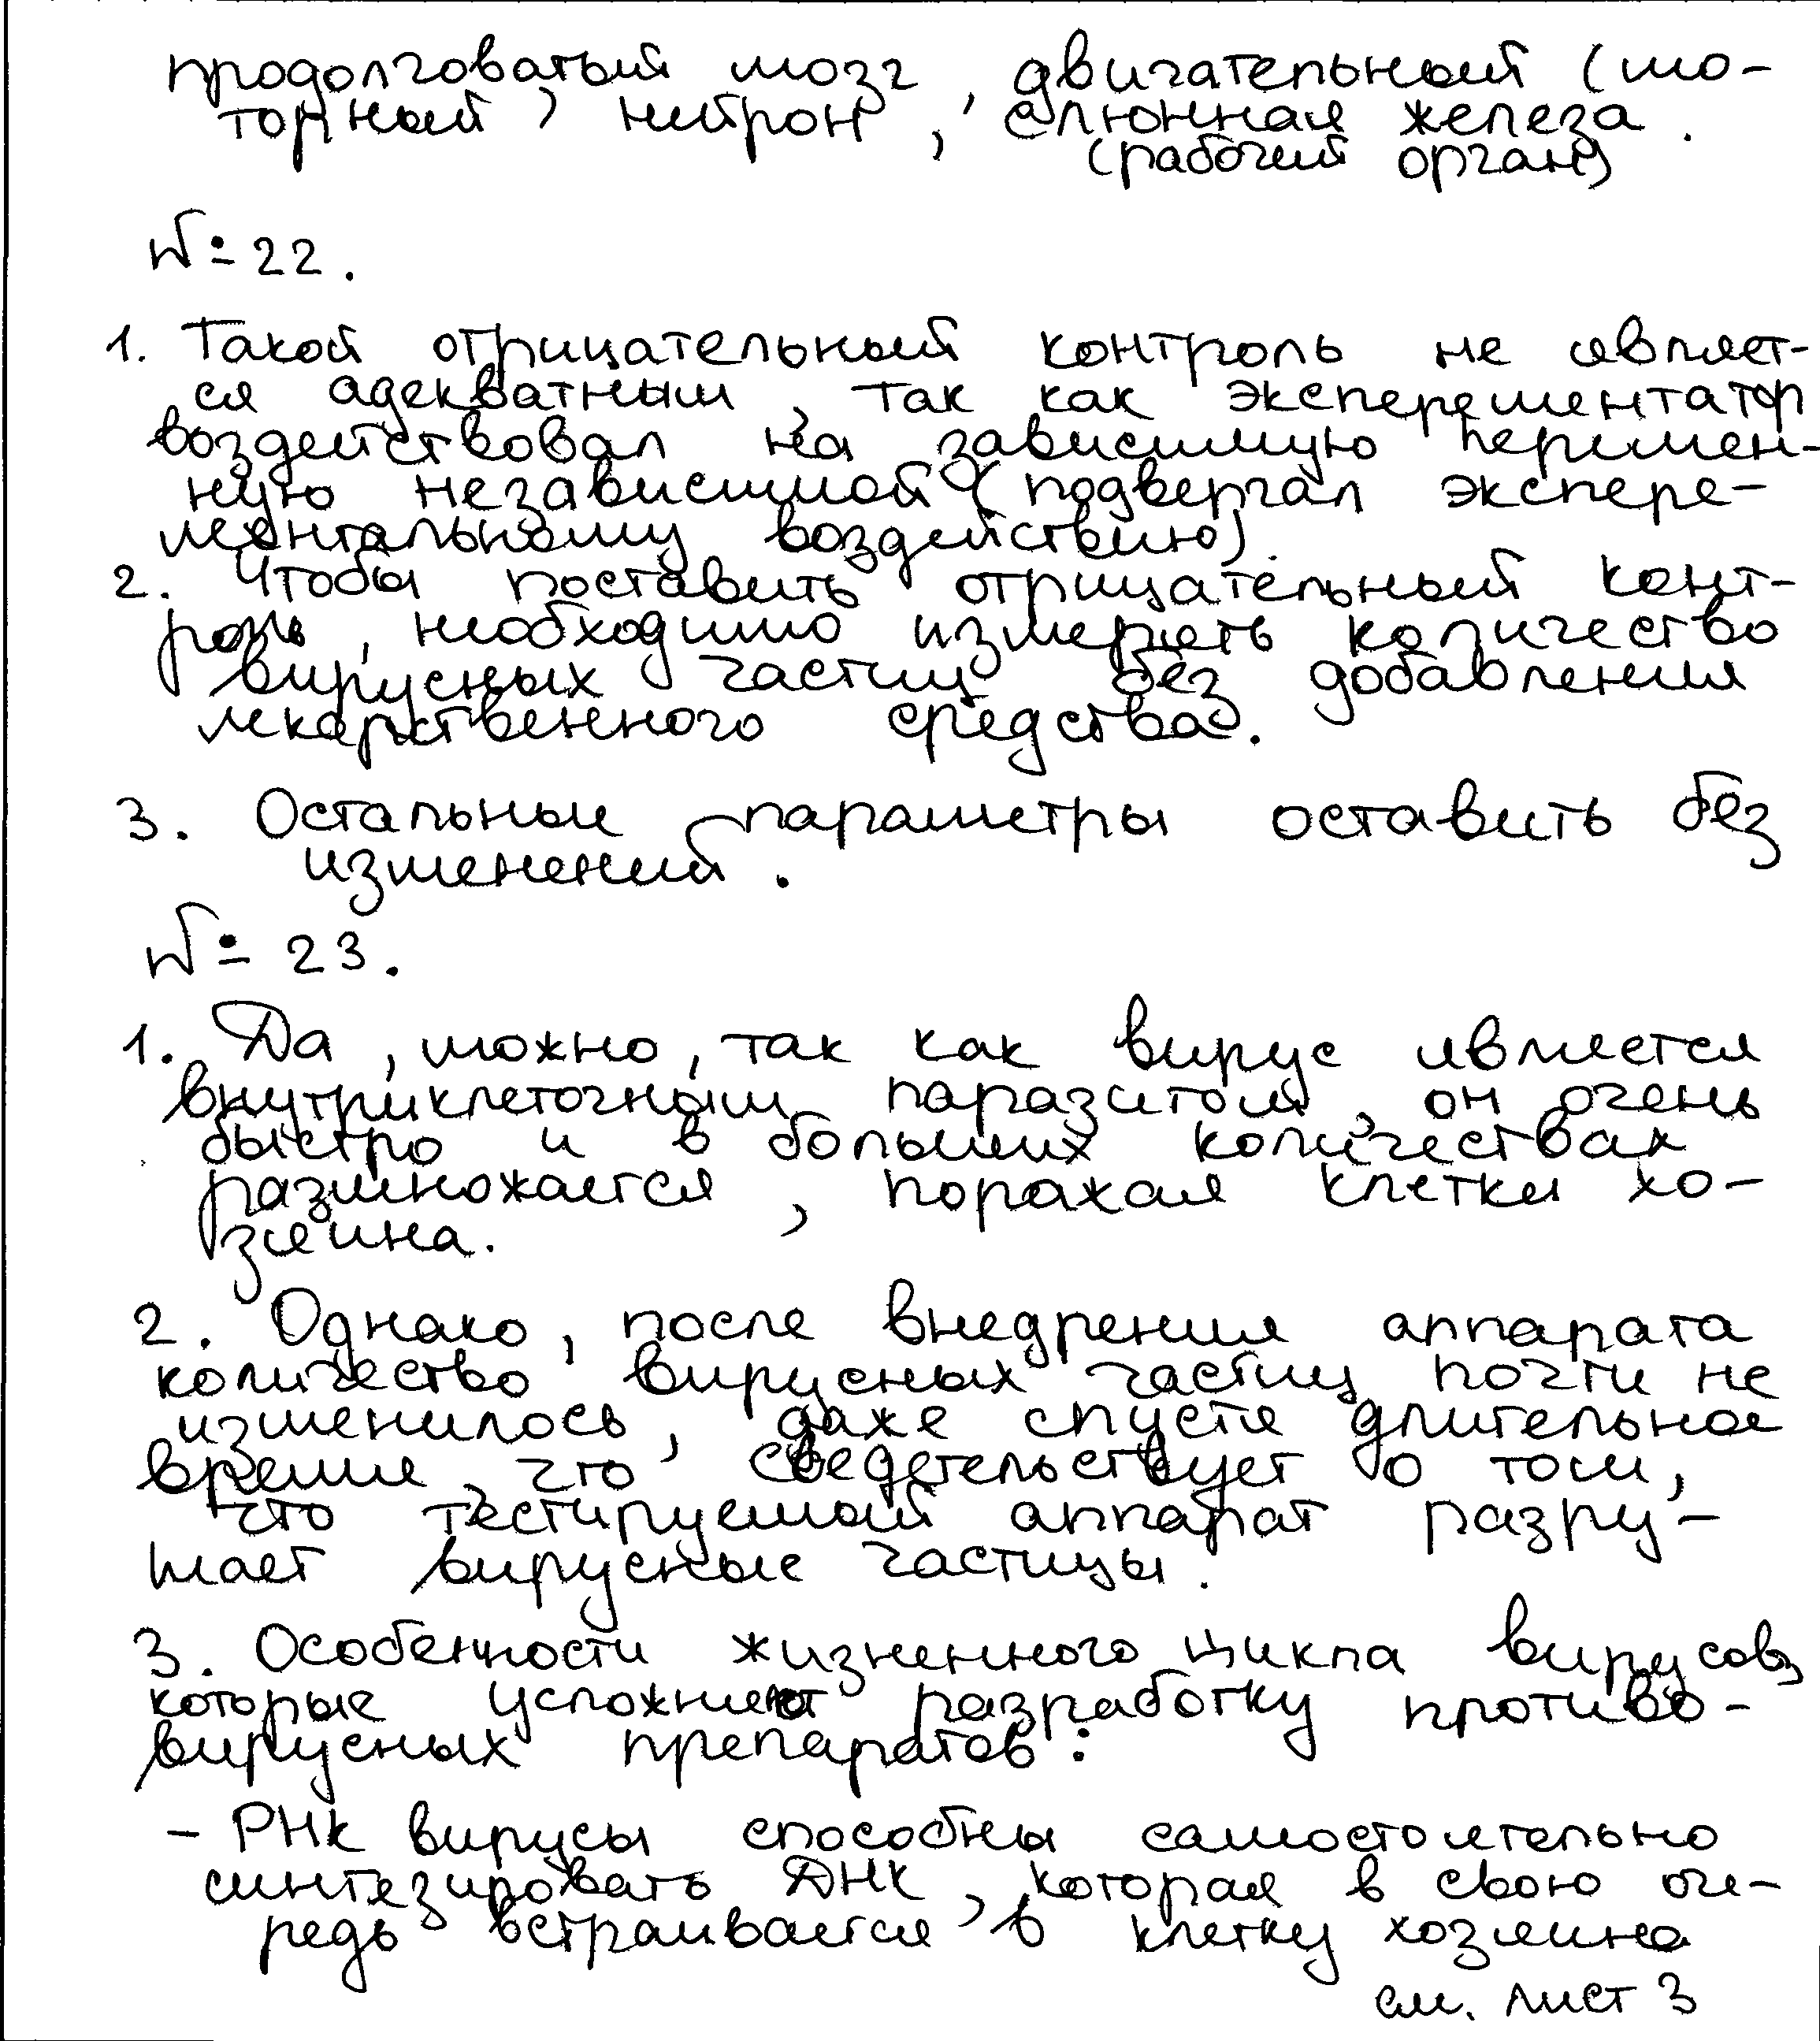 продолговатый мозг, двигательный (мо-
торный) нитрон, слюнная железа.
(рабочий орган)
№ 22.
1. Такой отрицательный контроль не являет-
ся адекватным, так как эксперементатор
воздействовал на зависимую перемен-
ную независимой (подвергал экспере-
ментальному воздействию).
2. Чтобы поставить отрицательный конт-
роль, необходимо измерять количество
вирусных частиц без добавления
лекарственного средства.
3. Остальные параметры оставить без
изменений.
№ 23.
1. Да, можно, так как вирус является
внутриклеточным паразитом, он очень
быстро и в больших количествах
размножается, поражая клетки хо-
зяина.
2. Однако, после внедрения аппарата
количество вирусных частиц почти не
изменилось, даже спустя длительное
время, что сведетельствует о том,
что тестируемый аппарат разру-
шает вирусные частицы.
3. Особенности жизненного цикла вирусов,
которые усложняют разработку противо-
вирусных препаратов:
- РНК вирусы способны самостоятельно
синтезировать ДНК, которая в свою оче-
редь встраивается в клетку хозяина
см. лист 3